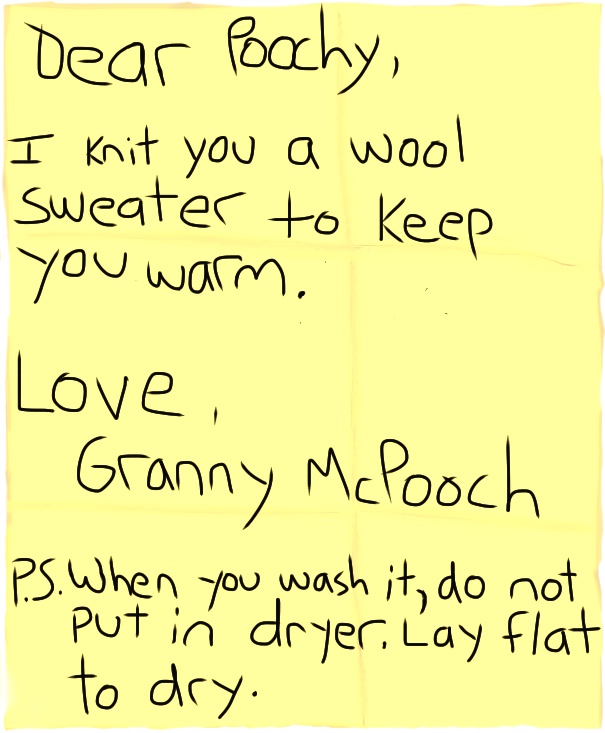 Dear Poochy,
I knit you a wool
sweater to keep
you warm.
Love,
Granny McPooch
P.S. When you wash it, do not
put in dryer. Lay flat
to dry.